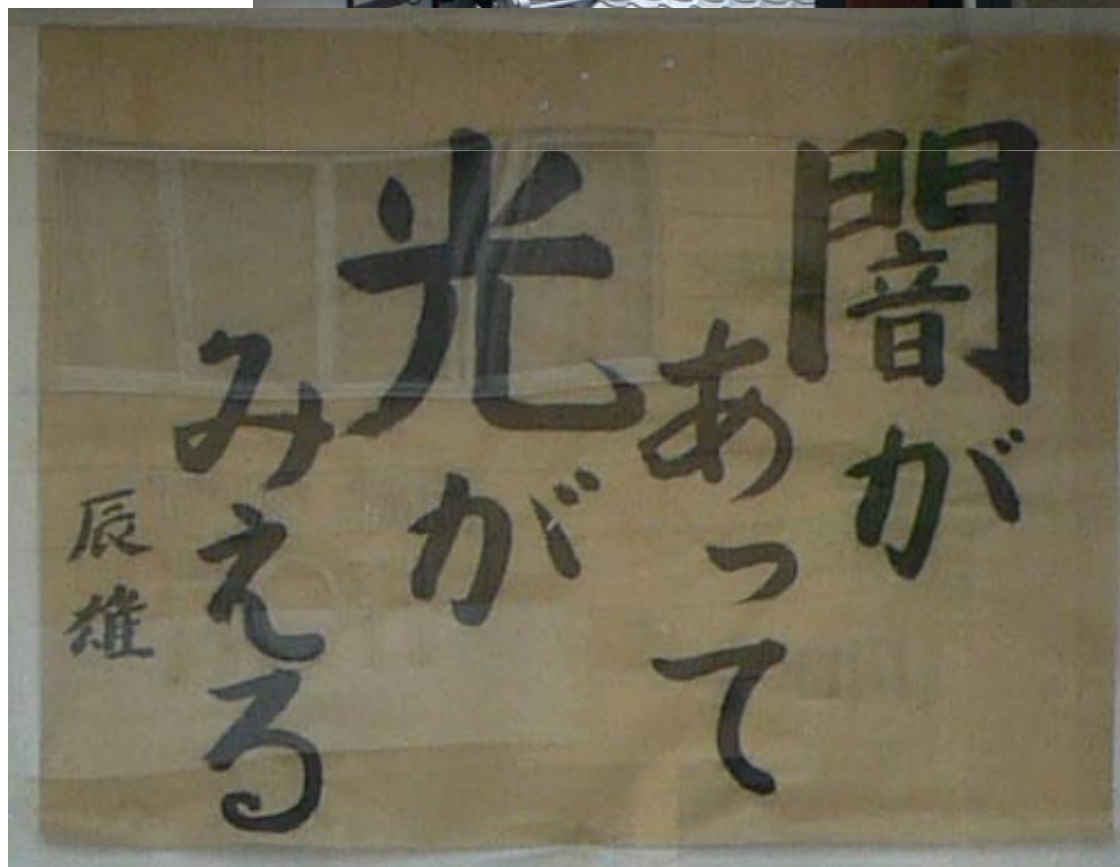 闇が
あって
光が
みえる
辰雄